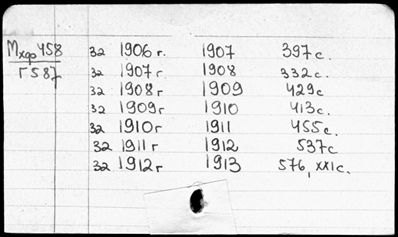 Мхдр 458 32 1906 г. 1907 397 с.
Г 587 32 1907 г. 1908 332 с.
32 1908 г 1909 429 с
32 1909 г 1910 413 с.
32 1910 г 1911 455 с.
32 1911 г 1912 537 с
32 1912 г 1913 576, XXI с.